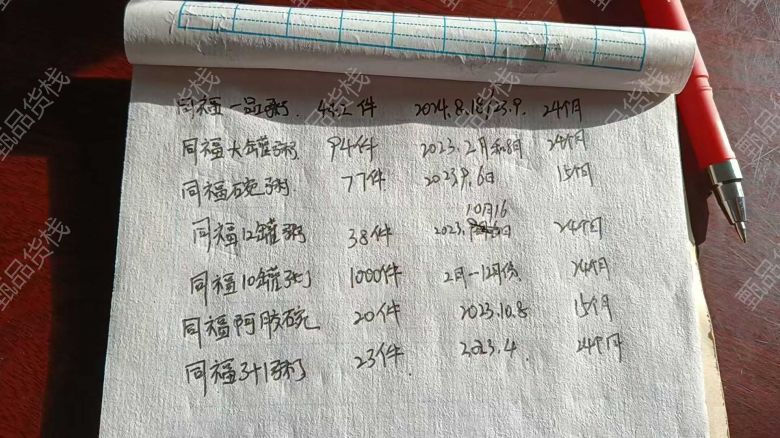 同福一品粥. 件 2024.8.18, 23.9. 24个月
同福大罐粥 94件 2023.2月和8月 24个月
同福碗粥 77件 2023.9.6日 15个月
10月16
同福12罐粥 38件 2023. 24个月
同福10罐粥 1000件 2月-12月份 24个月
同福阿胶碗 20件 2023.10.8 15个月
同福3+1粥 23件. 2023.4. 24个月
甄品货栈